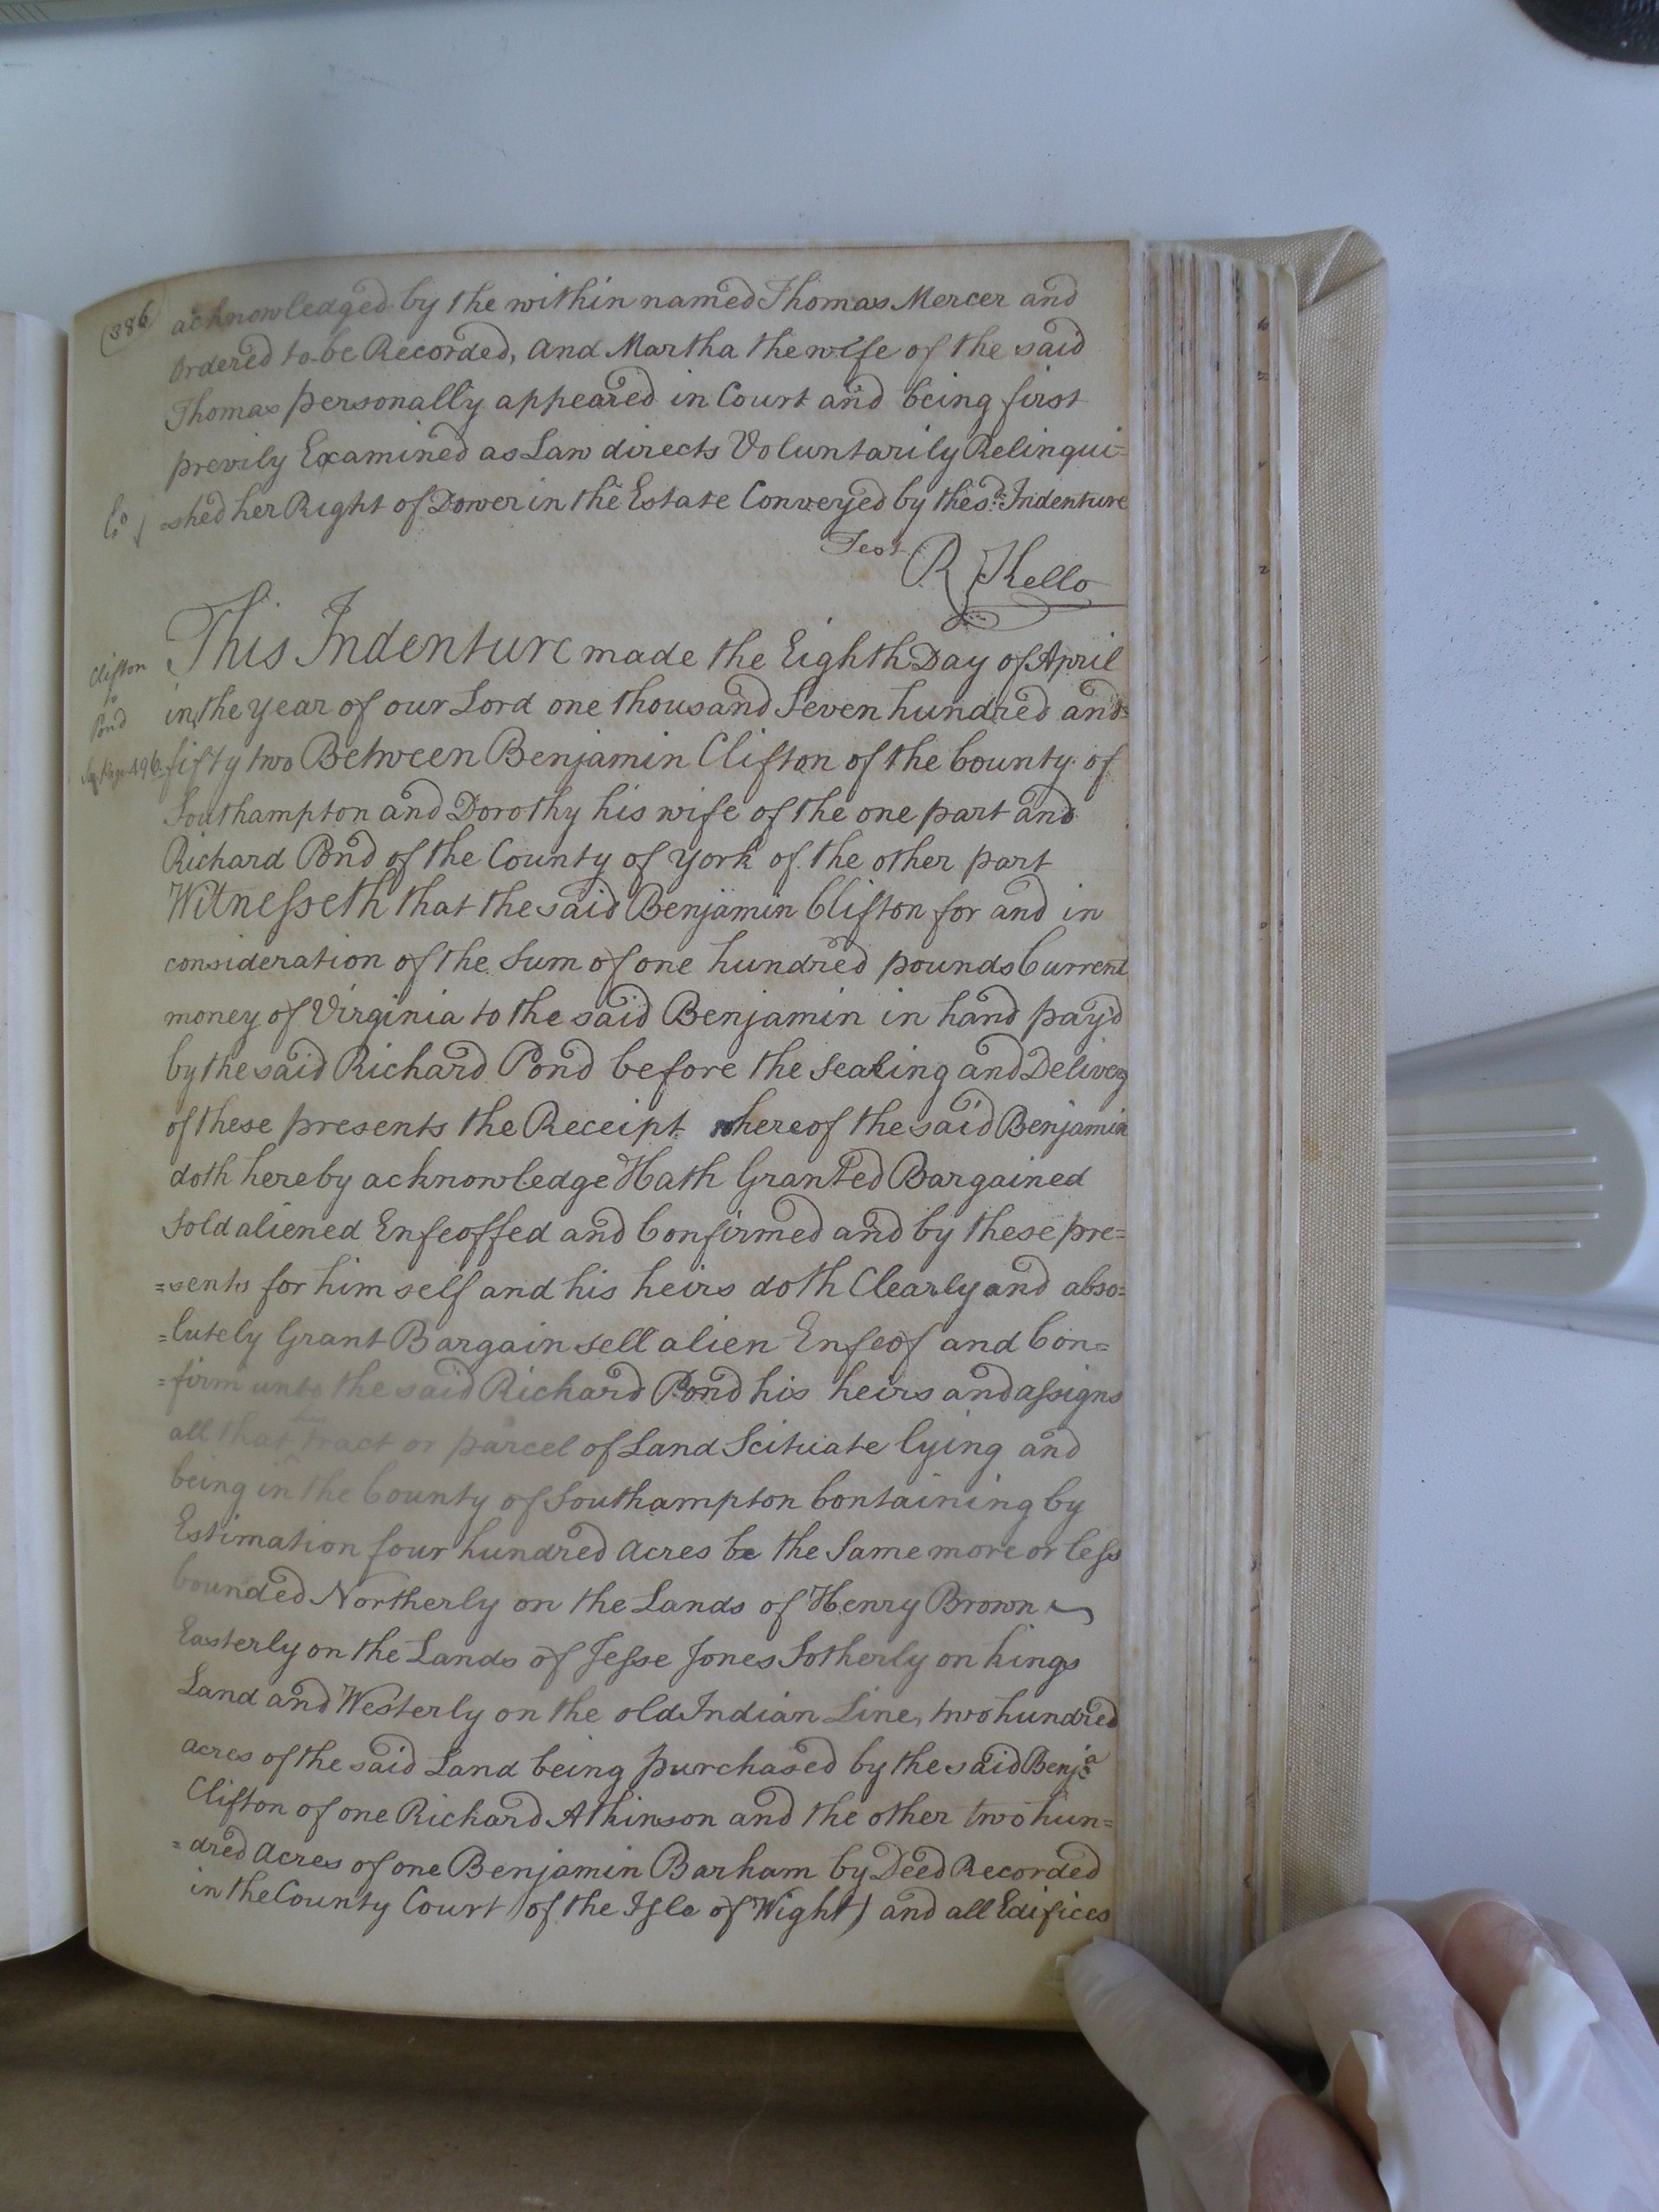 (386
acknowledged by the within named Thomas Mercer and
Ordered to be Recorded, And Martha the wife of the said
Thomas personally appeared in Court and being first
previly Examined as Law directs Voluntarily Relinqui=
=shed her Right of Dower in the Estate Conveyed by the sd. Indenture
Test
R Kello
Clifton
to
Pond
Page 496
This Indenture made the Eighth Day of April
in the year of our Lord one thousand Seven hundred and=
fifty two Between Benjamin Clifton of the County of
Southampton and Dorothy his wife of the one part and
Richard Pond of the County of York of the other part
Witnesseth that the said Benjamin Clifton for and in
consideration of the Sum of one hundred pounds Current
money of Virginia to the said Benjamin in hand pay'd
by the said Richard Pond before the Sealing and Delivery
of these presents the Receipt whereof the said Benjamin
doth hereby acknowledge Hath Granted Bargained
Sold aliened Enfeoffed and Confirmed and by these pre=
=sents for him self and his heirs doth Clearly and abso=
=lutely Grant Bargain sell alien Enfeof and Con=
=firm unto the said Richard Pond his heirs and assigns
all that tract or parcel of Land Scituate lying and
being in the County of Southampton Containing by
Estimation four hundred Acres be the Same more or less
bounded Northerly on the Lands of Henry Brown
Easterly on the Lands of Jesse Jones Sotherly on kings
Land and Westerly on the old Indian Line, two hundred
acres of the said Land being purchased by the said Benja
Clifton of one Richard Atkinson and the other two hun=
=dred Acres of one Benjamin Barham by Deed Recorded
in the County Court (of the Isle of Wight) and all Edifices